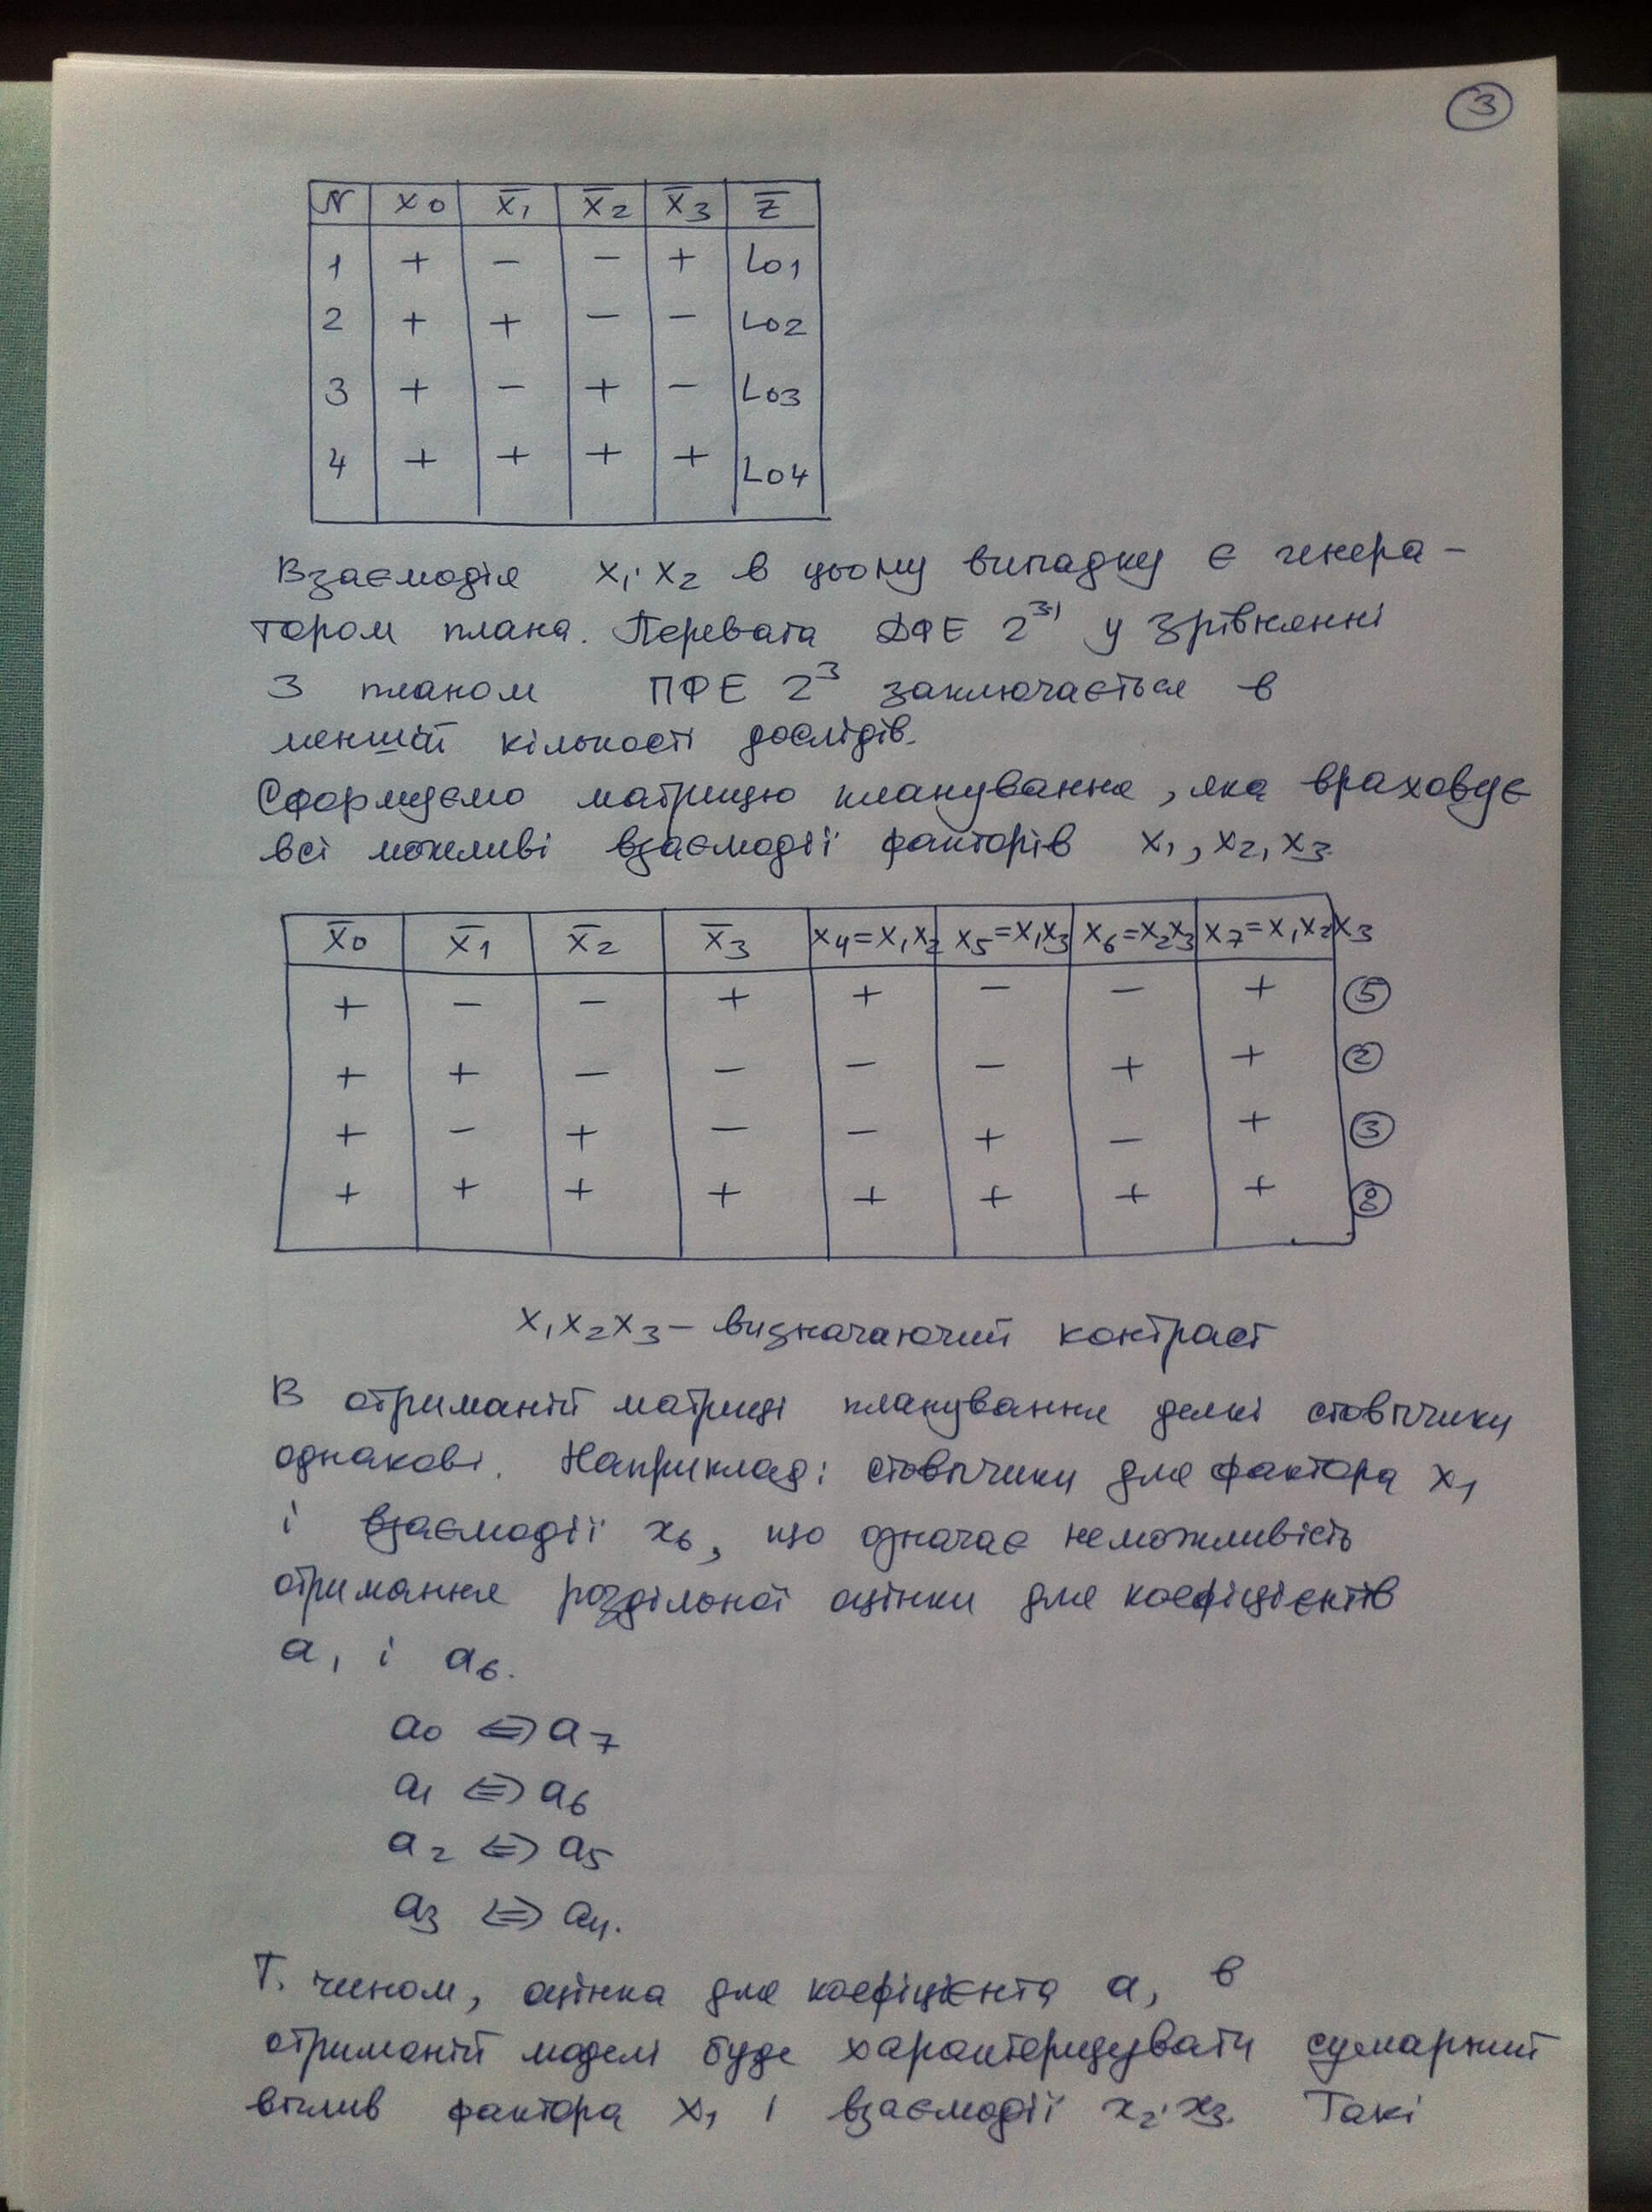 3
N x0 x̄1 x̄2 x̄3 z̄
1 + − − + L01
2 + + − − L02
3 + − + − L03
4 + + + + L04
Взаємодія x1·x2 в цьому випадку є генера-
тором плана. Перевага ДФЕ 2^3-1 у зрівнянні
з планом ПФЕ 2^3 заключається в
меншій кількості дослідів.
Сформуємо матрицю планування, яка враховує
всі можливі взаємодії факторів x1, x2, x3.
x̄0 x̄1 x̄2 x̄3 x4=x1x2 x5=x1x3 x6=x2x3 x7=x1x2x3
+ − − + + − − + 5
+ + − − − − + + 2
+ − + − − + − + 3
+ + + + + + + + 8
x1x2x3 – визначаючий контраст
В отриманій матриці планування деякі стовпчики
однакові. Наприклад: стовпчики для фактора x1
і взаємодії x6, що означає неможливість
отримання роздільної оцінки для коефіцієнтів
a1 і a6.
a0 ⇔ a7
a1 ⇔ a6
a2 ⇔ a5
a3 ⇔ a4.
Т. чином, оцінка для коефіцієнта a1 в
отриманій моделі буде характеризувати сумарний
вплив фактора x1 і взаємодії x2·x3. Такі